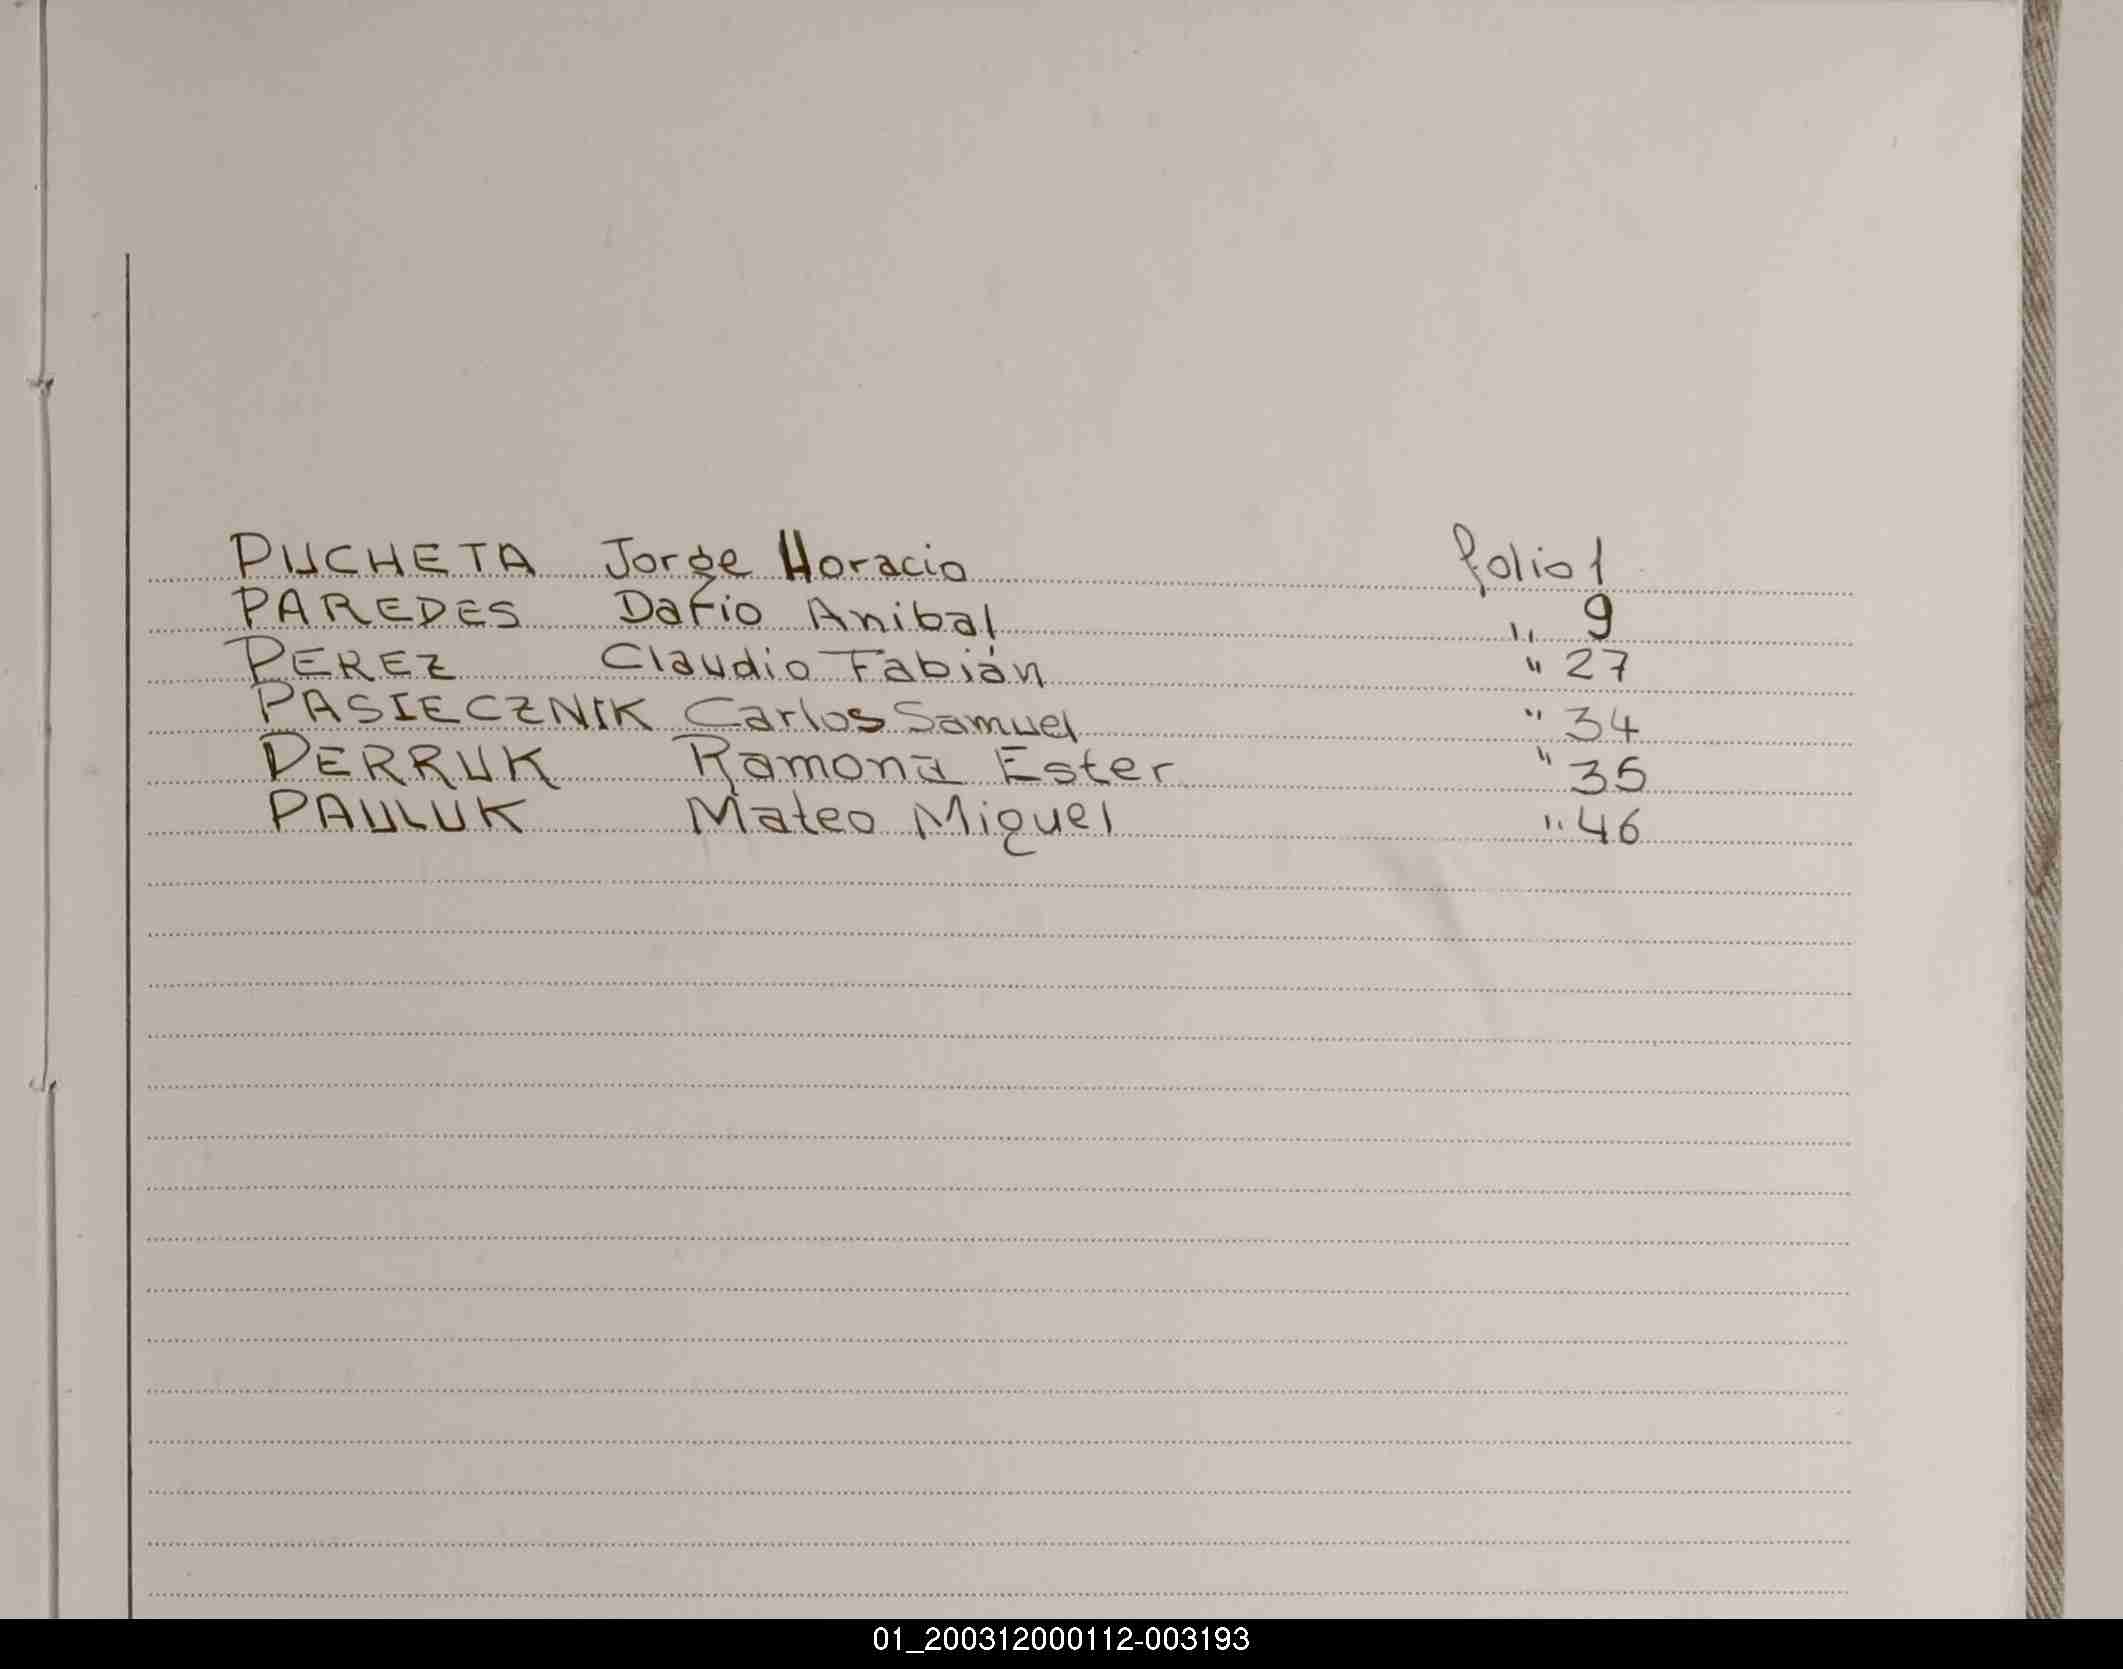 PUCHETA Jorge Horacio folio 1
PAREDES Darío Anibal " 9
PEREZ Claudio Fabián " 27
PASIECZNIK Carlos Samuel " 34
DERRUK Ramona Ester " 35
PAULUK Mateo Miguel " 46
01_200312000112-003193